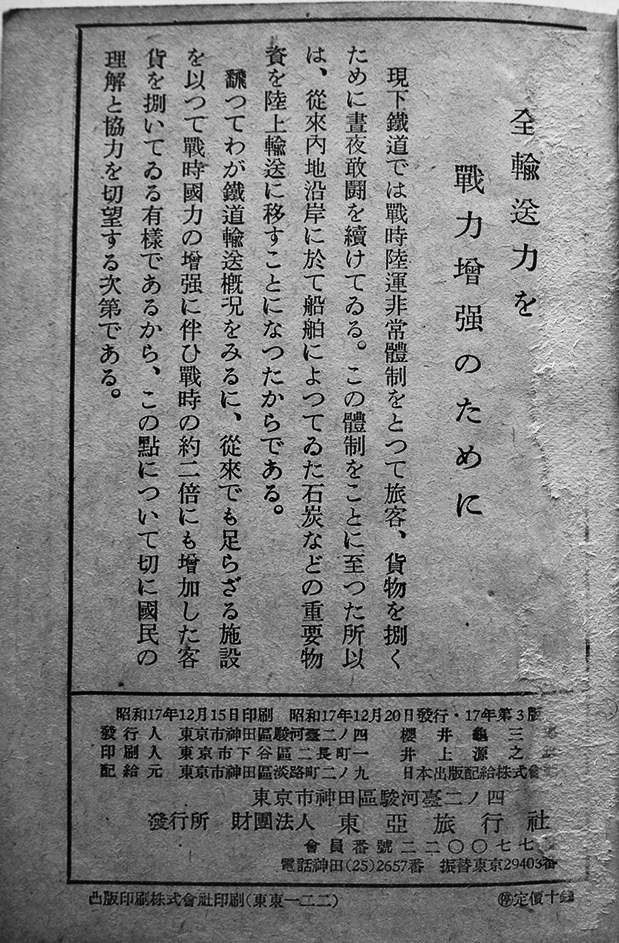 全輸送力を
戰力增强のために
現下鐵道では戰時陸運非常體制をとつて旅客、貨物を捌く
ために晝夜敢鬪を續けてゐる。この體制をことに至つた所以
は、從來內地沿岸に於て船舶によつてゐた石炭などの重要物
資を陸上輸送に移すことになつたからである。
飜つてわが鐵道輸送槪況をみるに、從來でも足らざる施設
を以つて戰時國力の增强に伴ひ戰時の約二倍にも增加した客
貨を捌いてゐる有樣であるから、この點について切に國民の
理解と協力を切望する次第である。
昭和17年12月15日印刷 昭和17年12月20日發行・17年第3版
發行人 東京市神田區駿河臺二ノ四 櫻井龜三
印刷人 東京市下谷區二長町一 井上源之
配給元 東京市神田區淡路町二ノ九 日本出版配給株式會
東京市神田區駿河臺二ノ四
發行所 財團法人 東亞旅行社
會員番號二二〇〇七七
電話神田(25)2657番 振替東京29403番
凸版印刷株式會社印刷(東東一二二) 停定價十錢